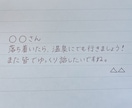 ○○さん
落ち着いたら、温泉にでも行きましょう！
また皆でゆっくり話したいですね。
△△